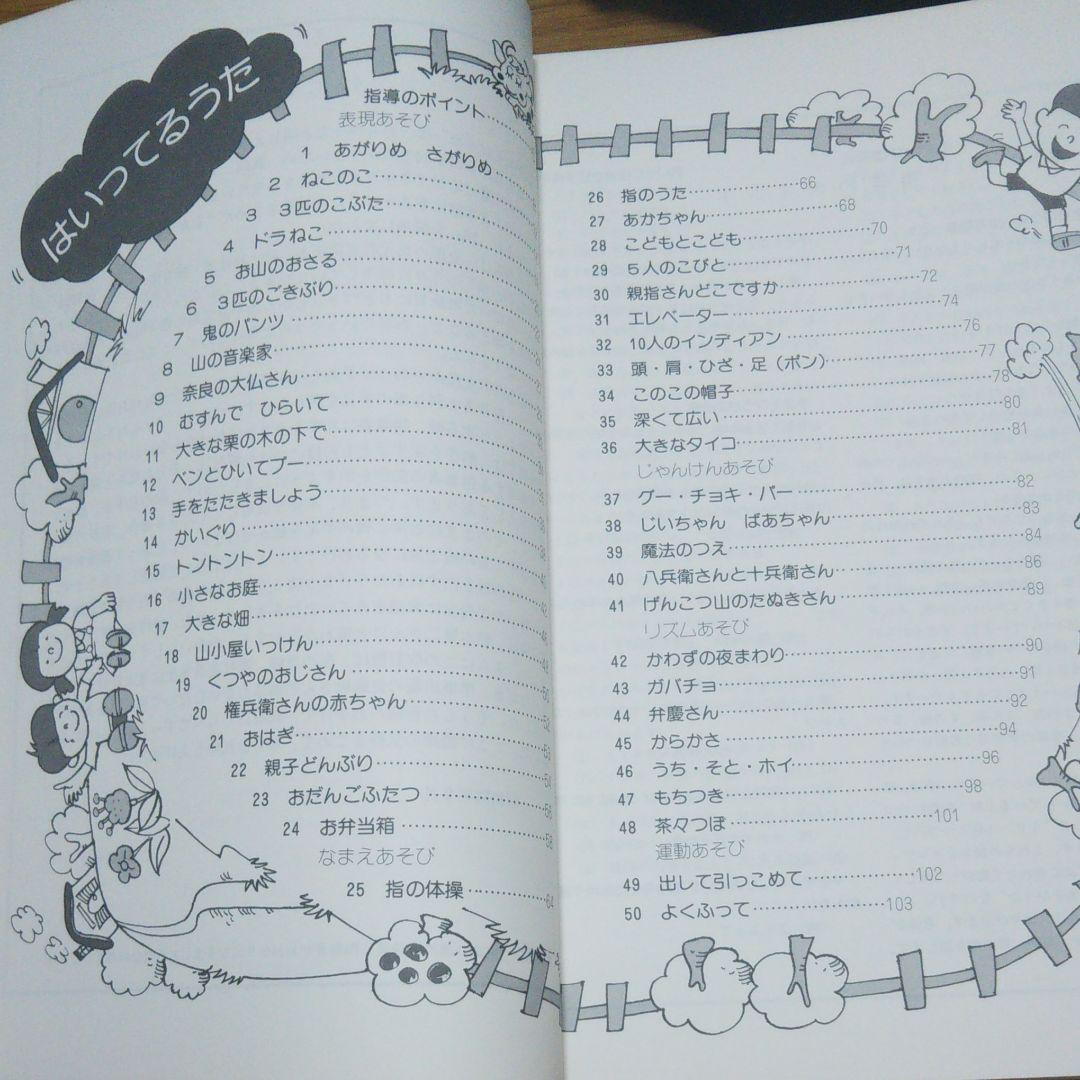 はいってるうた
指導のポイント
表現あそび
1 あがりめ さがりめ
2 ねこのこ
3 3匹のこぶた
4 ドラねこ
5 お山のおさる
6 3匹のごきぶり
7 鬼のパンツ
8 山の音楽家
9 奈良の大仏さん
10 むすんで ひらいて
11 大きな栗の木の下で
12 ペンとひいてプー
13 手をたたきましょう
14 かいぐり
15 トントントン
16 小さなお庭
17 大きな畑
18 山小屋いっけん
19 くつやのおじさん
20 権兵衛さんの赤ちゃん
21 おはぎ
22 親子どんぶり
23 おだんごふたつ
24 お弁当箱
なまえあそび
25 指の体操 64
26 指のうた 66
27 あかちゃん 68
28 こどもとこども 70
29 5人のこびと 71
30 親指さんどこですか 72
31 エレベーター 74
32 10人のインディアン 76
33 頭・肩・ひざ・足（ポン） 77
34 このこの帽子 78
35 深くて広い 80
36 大きなタイコ 81
じゃんけんあそび
37 グー・チョキ・パー 82
38 じいちゃん ばあちゃん 83
39 魔法のつえ 84
40 八兵衛さんと十兵衛さん 86
41 げんこつ山のたぬきさん 89
リズムあそび
42 かわずの夜まわり 90
43 ガバチョ 91
44 弁慶さん 92
45 からかさ 94
46 うち・そと・ホイ 96
47 もちつき 98
48 茶々つぼ 101
運動あそび
49 出して引っこめて 102
50 よくふって 103